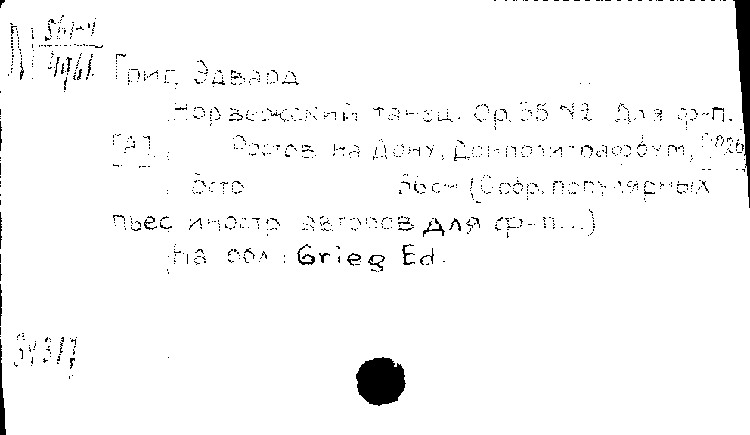 Григ, Эдвард
Норвежский танец. Ор. 35 №2 Для ф-п.
Ростов на Дону, Донполиграфбум,
36см (Собр. популярных
пьес иностр авторов для ф-п...)
На обл: Grieg Ed.
34317